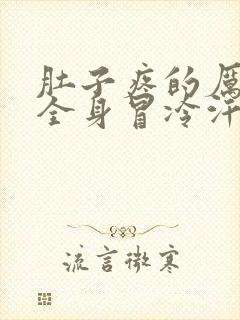 肚子疼的厉
全身冒冷汗
流言微寒